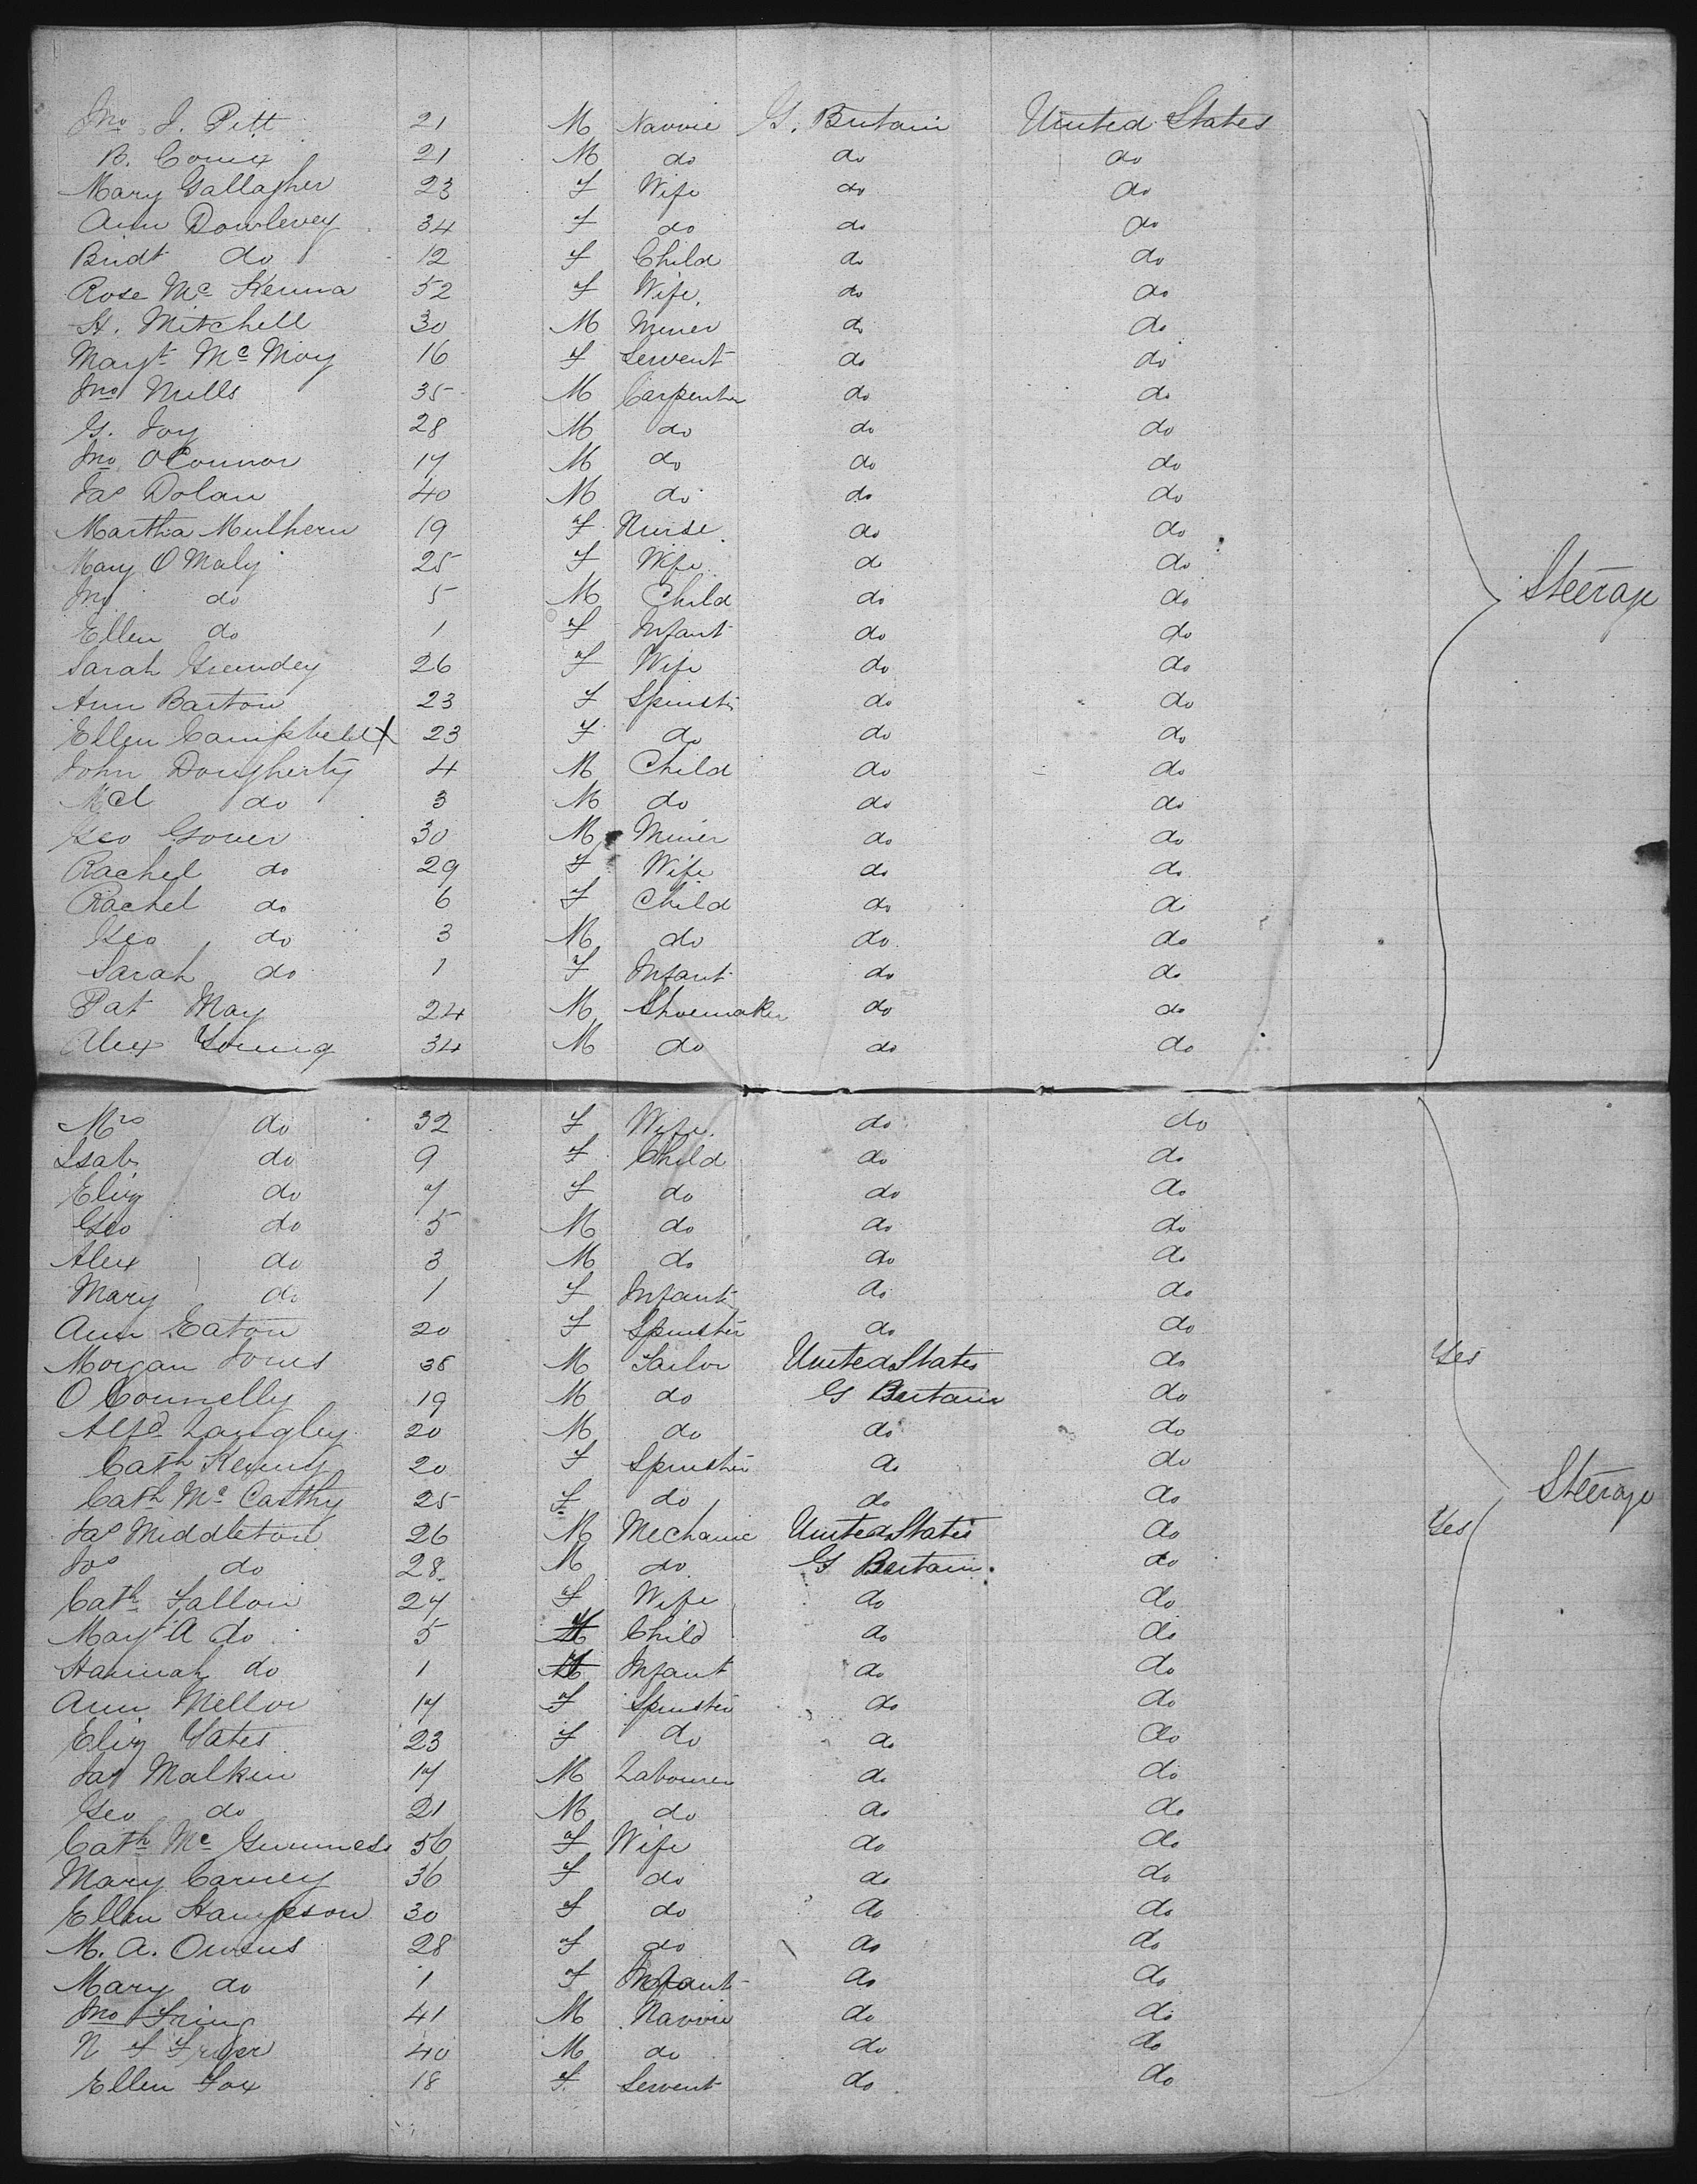 Jno J. Pitt 21 M Navvie G. Britain United States
B. Comix 21 M do do do
Mary Gallagher 23 F Wife do do
Ann Dowlevey 34 F do do do
Bridt do 12 F Child do do
Rose Mc Kenna 52 F Wife do do
H. Mitchell 30 M Miner do do
Margt Mc Moy 16 F Servent do do
Jno Mills 35 M Carpenter do do
G. Joy 28 M do do do
Jno O'Connor 17 M do do do
Jas Dolan 40 M do do do
Martha Mulhern 19 F Nurse do do
Mary O Maly 25 F Wife do do Steerage
Jno do 5 M Child do do
Ellen do 1 F Infant do do
Sarah Grundey 26 F Wife do do
Ann Barton 23 F Spinstr do do
Ellen Campbell X 23 F do do do
John Dougherty 4 M Child do do
Mcl do 3 M do do do
Geo Gower 30 M Miner do do
Rachel do 29 F Wife do do
Rachel do 6 F Child do do
Geo do 3 M do do do
Sarah do 1 F Infant do do
Pat May 24 M Shoemaker do do
Alex Young 34 M do do do
Mrs do 32 F Wife do do
Isab do 9 F Child do do
Eliz do 7 F do do do
Geo do 5 M do do do
Alex do 3 M do do do
Mary do 1 F Infant do do
Ann Eaton 20 F Spinster do do
Morgan Jones 38 M Tailor United States do Yes
O Connelly 19 M do G Britain do
Alfd Langley 20 M do do do
Cath Kenny 20 F Spinster do do
Cath Mc Carthy 25 F do do do Steerage
Jas Middleton 26 M Mechanic United States do Yes
Jos do 28 M do G Britain do
Cath Fallon 27 F Wife do do
Margt A do 5 F Child do do
Hannah do 1 F Infant do do
Ann Mellor 17 F Spinster do do
Eliz Yates 23 F do do do
Jas Malkin 17 M Labourer do do
Geo do 21 M do do do
Cath Mc Guinness 50 F Wife do do
Mary Carney 36 F do do do
Ellen Hampson 30 F do do do
M. A. Owens 28 F do do do
Mary do 1 F Infant do do
Jno Fring 41 M Navvie do do
N F Fryer 40 M do do do
Ellen Fox 18 F Servent do do